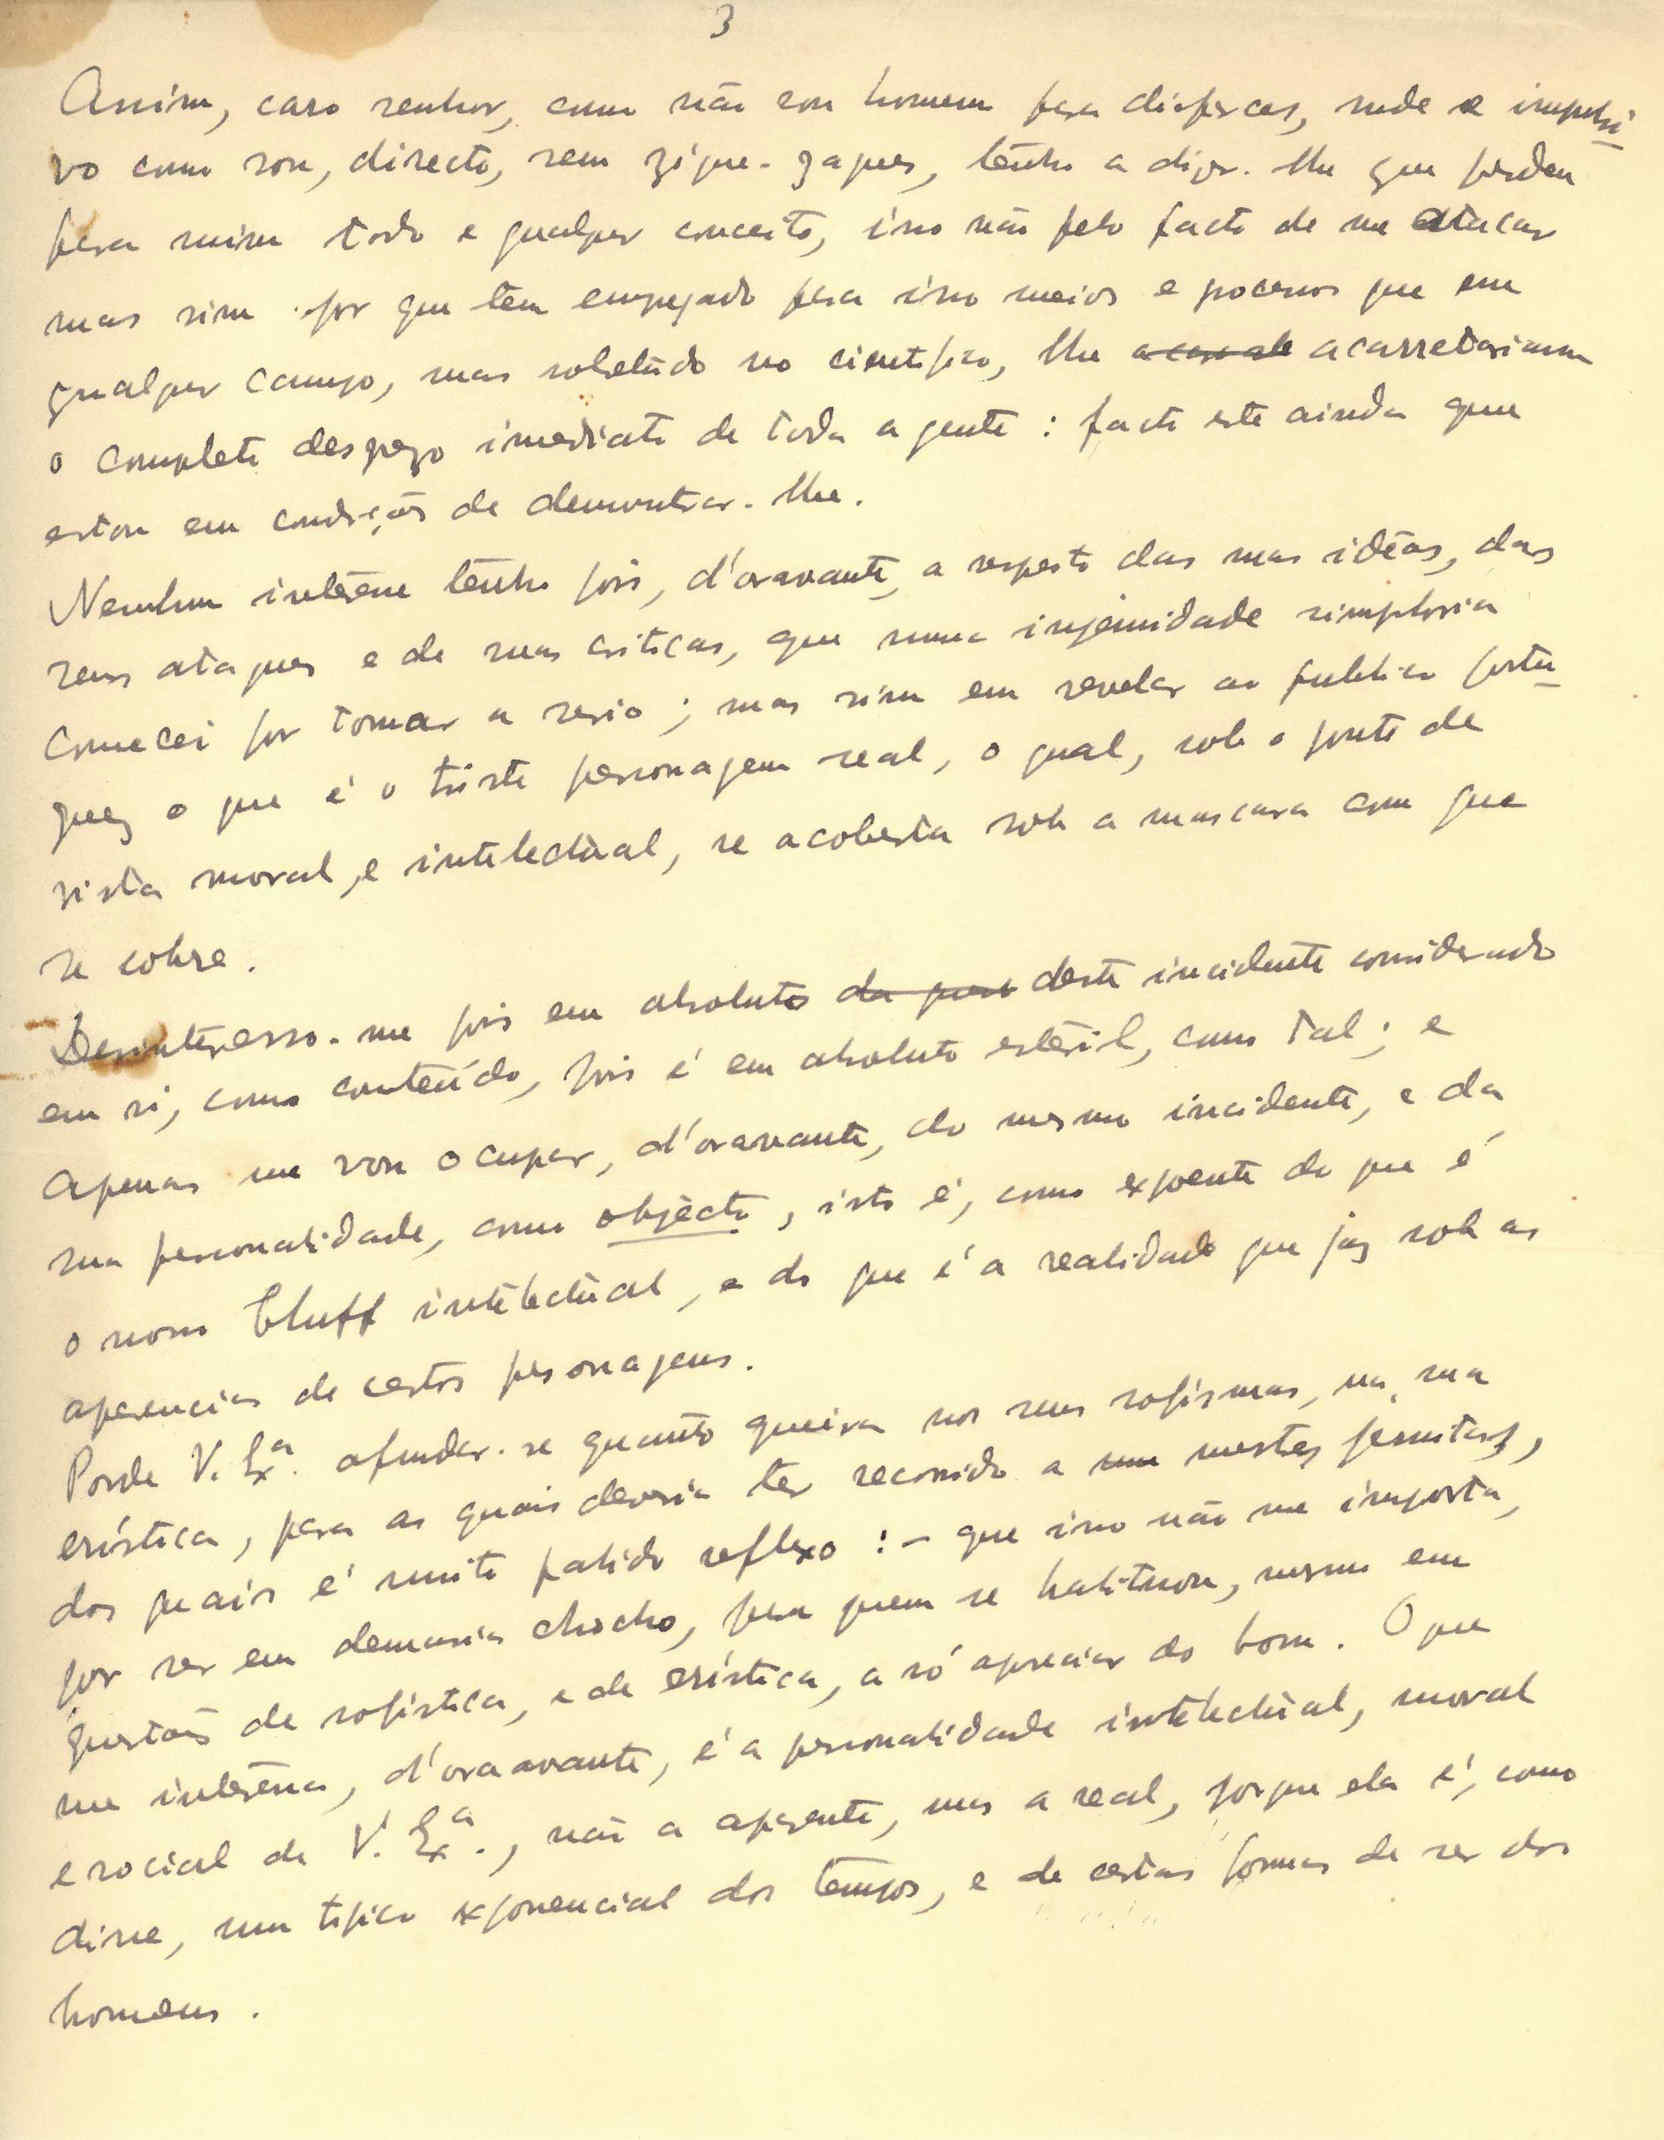 3
Assim, caro senhor, como não sou homem para disfarces, rude e impulsi-
vo como sou, directo, sem zigue-zagues, tenho a dizer-lhe que perdeu
para mim todo e qualquer conceito, isso não pelo facto de me atacar
mas sim por que tem empregado para isso meios e processos que em
qualquer campo, mas sobretudo no cientifico, lhe acarretariam
o completo desprezo imediato de toda a gente : facto este ainda que
estou em condições de demonstrar-lhe.
Nenhum interesse tenho pois, d'oravante, a respeito das suas idéas, dos
seus ataques e de suas criticas, que numa injenuidade simploria
comecei por tomar a serio ; mas sim em revelar ao publico portu-
guez o que é o triste personagem real, o qual, sob o ponto de
vista moral, e intelectual, se acoberta sob a mascara com que
se cobre.
Desinteresso-me pois em absoluto da deste incidente considerado
em si, como conteúdo, pois é em absoluto estéril, como tal ; e
apenas me vou ocupar, d'oravante, do mesmo incidente, e da
sua personalidade, como objècto, isto é, como expoente do que é
o nosso bluff intelectual, e do que é a realidade que jaz sob as
aparencias de certos personagens.
Pode V. Exª. afundar-se quanto queira nos seus sofismas, na sua
erística, para as quais deveria ter recorrido a mestres jesuitas,
dos quais é muito palido reflexo : - que isso não me importa,
por ser em demasia chocho, para quem se habituou, mesmo em
questões de sofística, e de erística, a só apreciar do bom. O que
me interessa, d'oraavante, é a personalidade intelectual, moral
e social de V. Exª., não a aparente, mas a real, porque ela é, como
disse, um tipico exponencial dos tempos, e de certas formas de ser dos
homens.